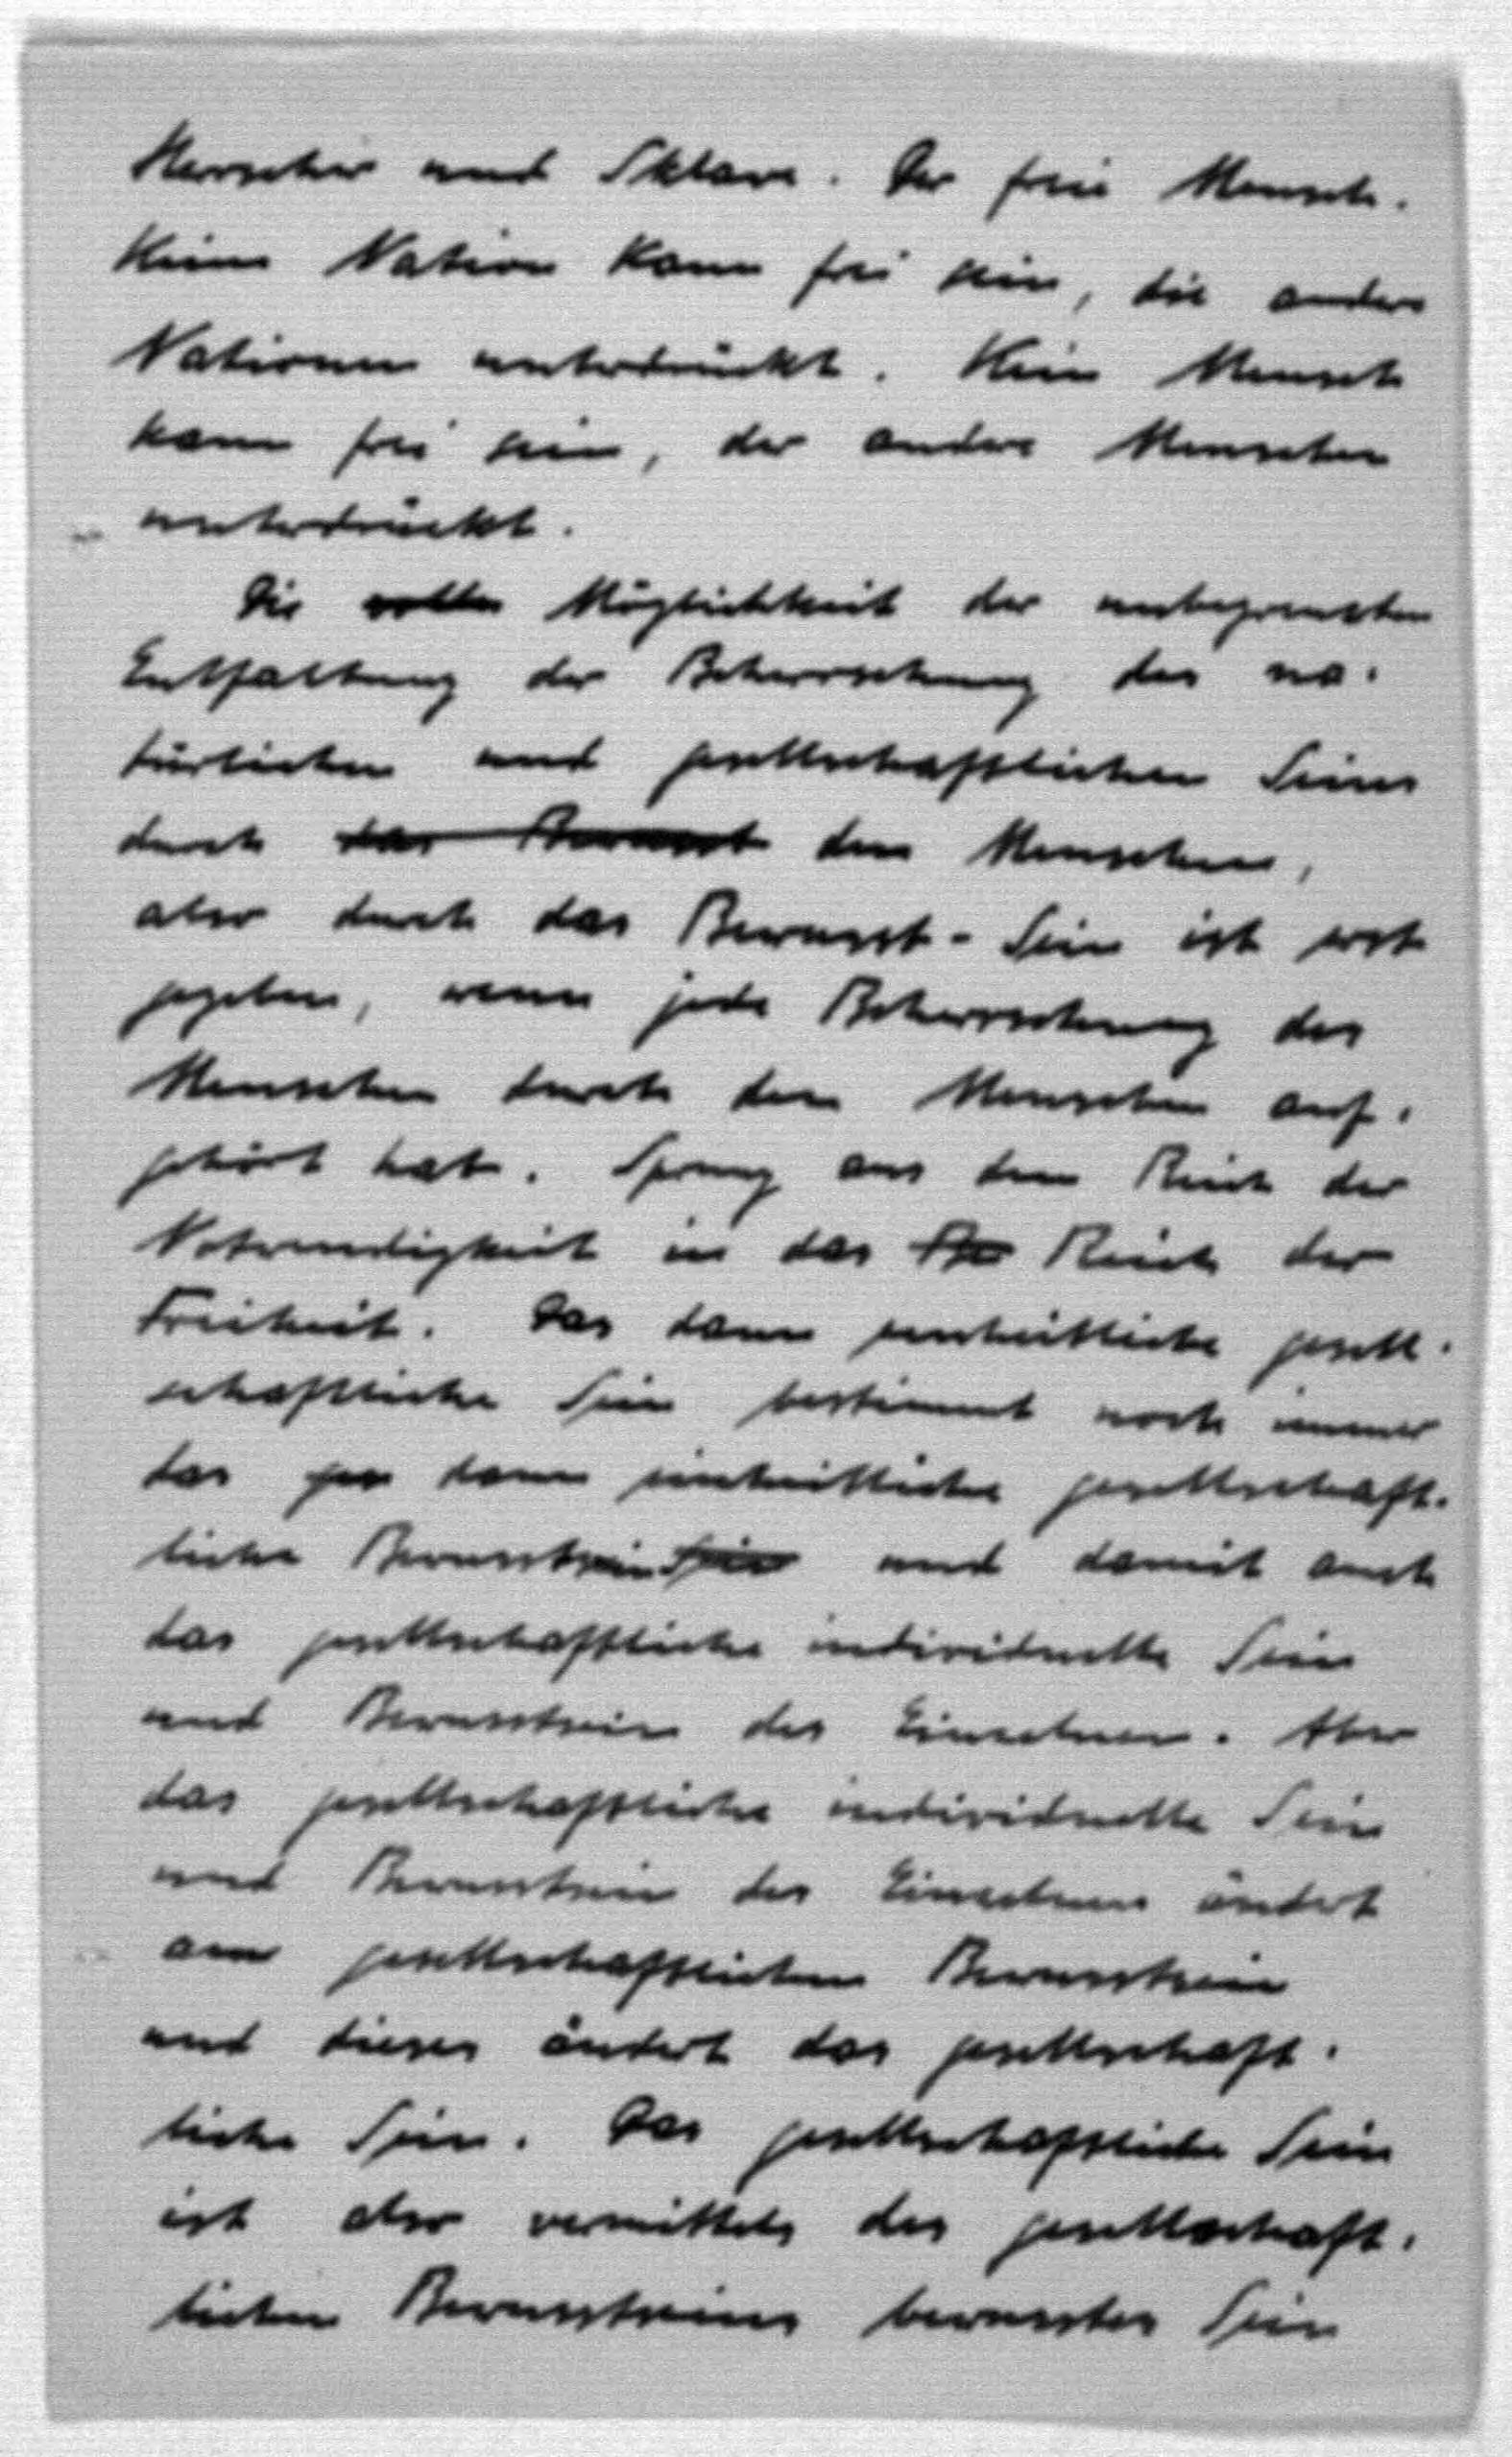 Herrscher und Sklave. Der freie Mensch.
Keine Nation kann frei sein, die andere
Nationen unterdrückt. Kein Mensch
kann frei sein, der andere Menschen
unterdrückt.
Die volle Möglichkeit der unbegrenzten
Entfaltung der Beherrschung des na-
türlichen und gesellschaftlichen Seines
durch das Bewusst den Menschen,
also durch das Bewusst-Sein ist erst
gegeben, wenn jede Beherrschung des
Menschen durch den Menschen auf-
gehört hat. Sprung aus dem Reich der
Notwendigkeit in das Reich der
Freiheit. Das dann einheitliche gesell-
schaftliche Sein bestimmt noch immer
das ges dann einheitliche gesellschaft-
liche Bewusstsein Sein und damit auch
das gesellschaftliche individuelle Sein
und Bewusstsein des Einzelnen. Aber
das gesellschaftliche individuelle Sein
und Bewusstsein des Einzelnen ändert
am gesellschaftlichen Bewusstsein
und dieses ändert das gesellschaft-
liche Sein. Das gesellschaftliche Sein
ist also vermittels des gesellschaft-
lichen Bewusstseins bewusstes Sein